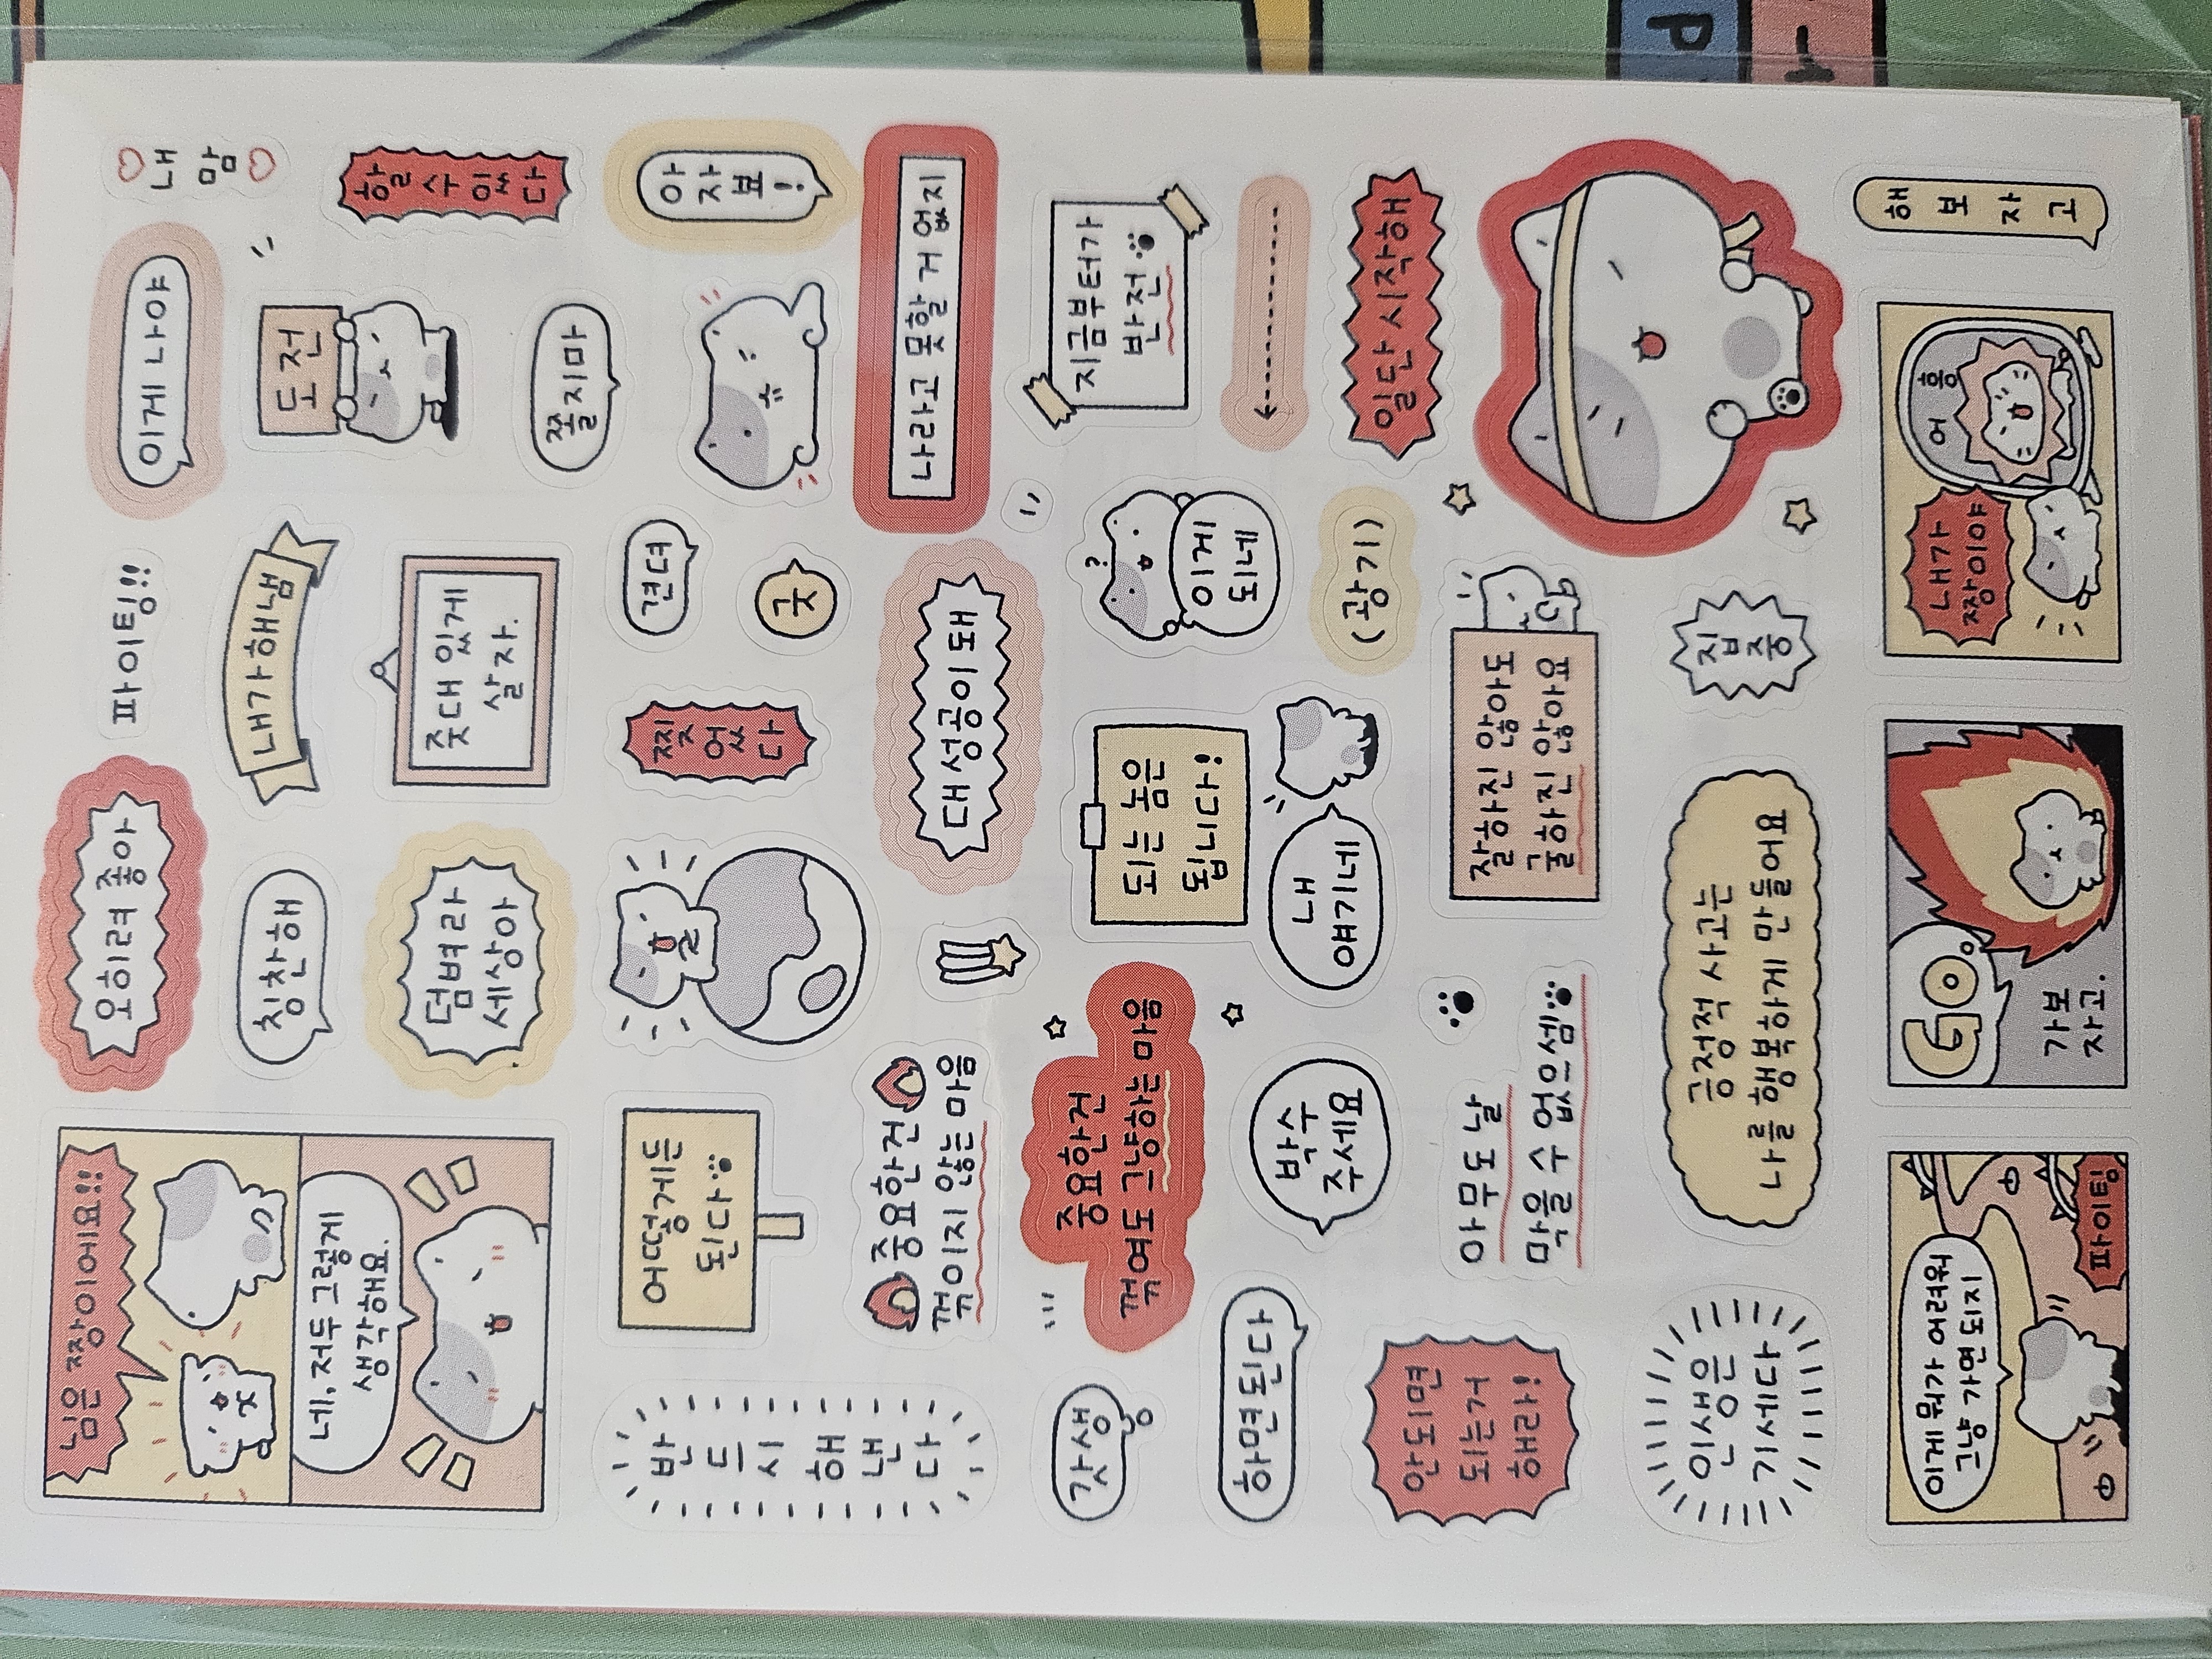 님은 짱이에요!!
네, 저두 그렇게
생각해요.
오히려 좋아
파이팅!!
이게 나야
내
맘
칭찬해
내가 해냄
도전
할
수
있
다
덤벼라
세상아
줏대 있게
살자.
쫄지마
아
자
뵤
!
반
드
시
해
낸
다
어떻게든
된다
찢
었
다
견뎌
굿
중요한건
꺾이지 않는 마음
대성공이 돼
나라고 못할 거 없지
갓생
중요한건
꺾여도 그냥하는 마음
되는 놈은
됩니다!
이게
되네
지금부터가
반전
하면된다
박수
주세요
내
얘기네
(광기)
일단 시작해
안되면
되는거
해라!
아무도 날
막을 수 없으셈
잘하진 않아도
굴하진 않아요
인생은
기세다
긍정적 사고는
나를 행복하게 만들어요
집
중
이게 뭐가 어려워
그냥 가면 되지
파이팅
GO
가보
자고.
내가
짱이야
어
흥
해
보
자
고